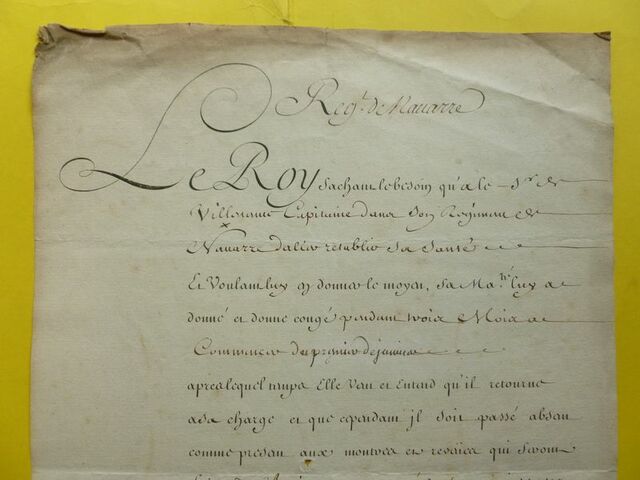 Reg.t de Navarre
Le Roy sachant le besoin qu'a le S.r de
Capitaine dans son Regiment de
Navarre d'aller retablir sa santé
Et Voulant luy en donner le moyen, sa Ma.té luy a
donné et donné congé pendant trois Mois a
Commencer du premier de janvier
apres lequel temps Elle Veut et Entend qu'il retourne
a sa charge et que cependant jl soit passé absent
comme present aux montres et reveües qui seront